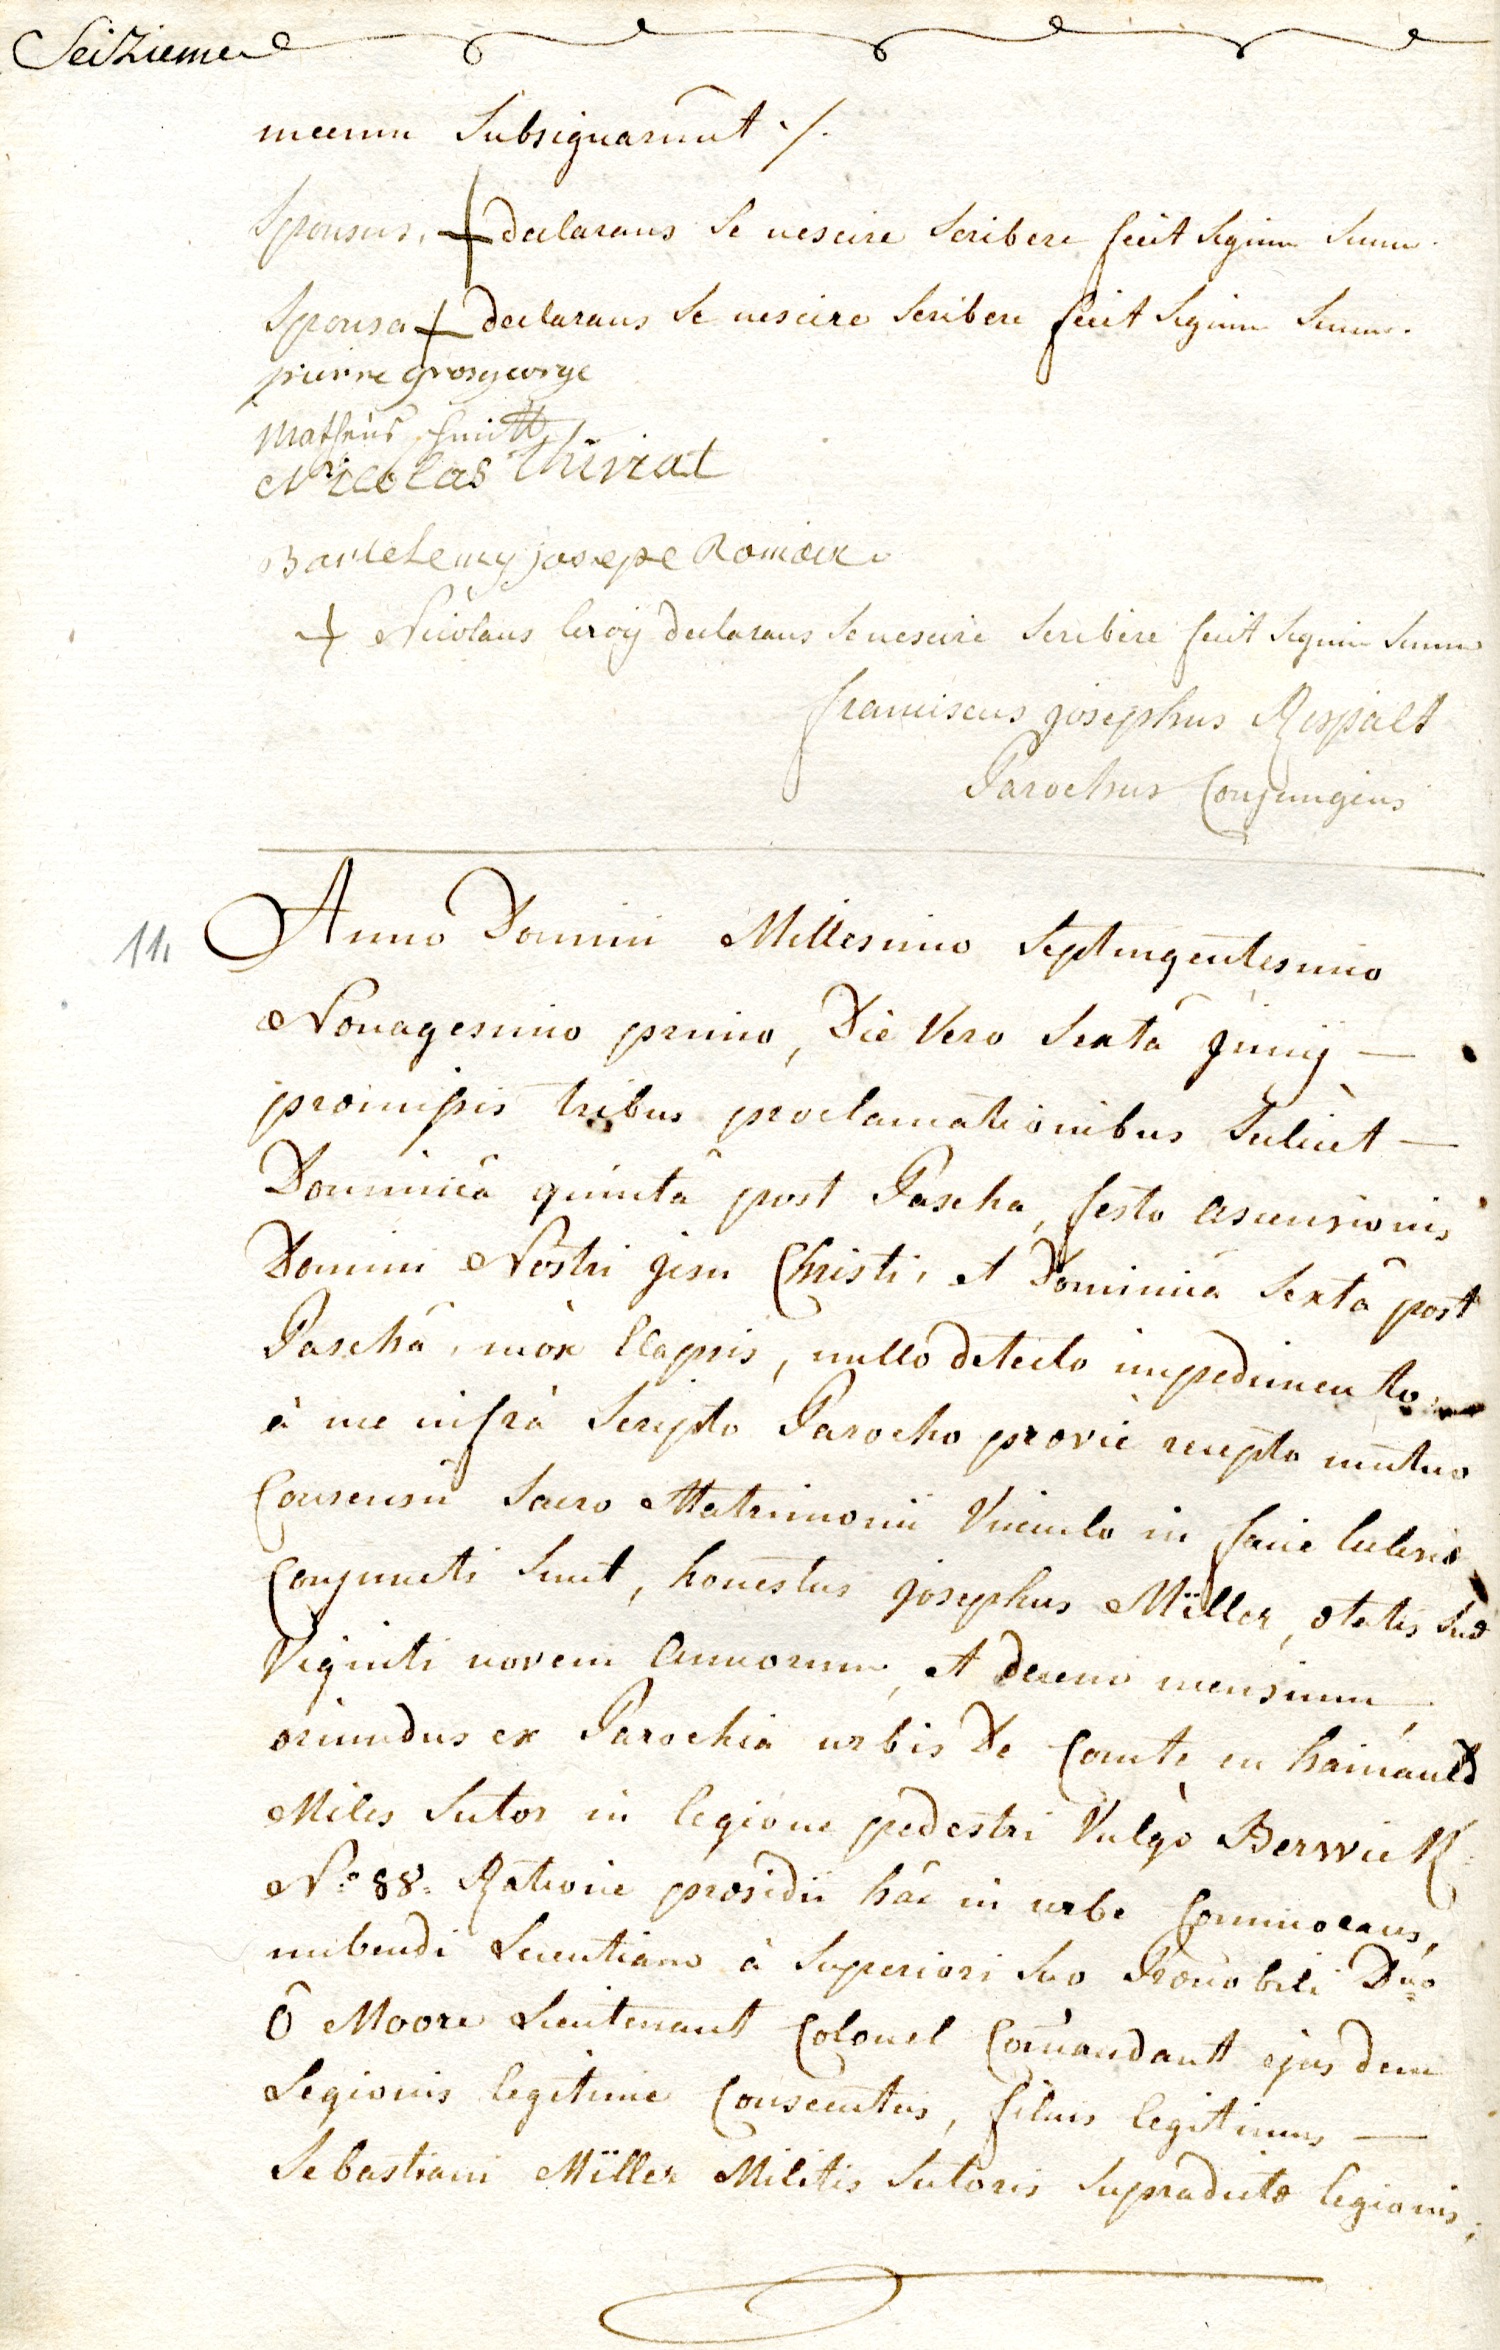 Seizieme
mecum Subsignarunt ./.
Sponsus, + declarans Se nescire Scribere fecit Signum Suum.
Sponsa + declarans Se nescire Scribere fecit Signum Suum.
pierre grosgeorge
Matheus Smitt
Nicolas thiriat
Bartelemy josepe Romain
+ Nicolaus leroy declarans Se nescire Scribere fecit Signum Suum
franciscus josephus Respalt
Parochus Conjungens
11,
Anno Domini Millesimo Septingentesimo
Nonagesimo primo, Die Vero Sexta Junij —
præmissis tribus proclamationibus Scilicet —
Dominicâ quintâ post Pascha, festo ascensionis
Domini Nostri Jesu Christi, et Dominica Sextâ post
Paschâ, mox Elapsis, nullo detecto impedimento
à me infrà Scripto Parocho prævie recepto mutuo
Consensû Sacro Matrimonii Vinculo in facie Eclesiæ
Conjuncti Sunt, honestus josephus Mïller, ætatis Suæ
Viginti novem annorum, et decem mensium,
oriundus ex Parochiâ urbis De Comte en hainault
Miles Sutor in legione pedestri Vulgò Berwick
N.º 88. Ratione præsidii hâc in urbe Commorans,
nubendi Licentiam à Superiori Suo Prænobili Dno
Ô Moore Lieutenant Colonel Comandantt ejusdem
Legionis legitime Consecutus, filius legitimus —
Sebastiani Mïller Militis Sutoris Supradictæ legionis,